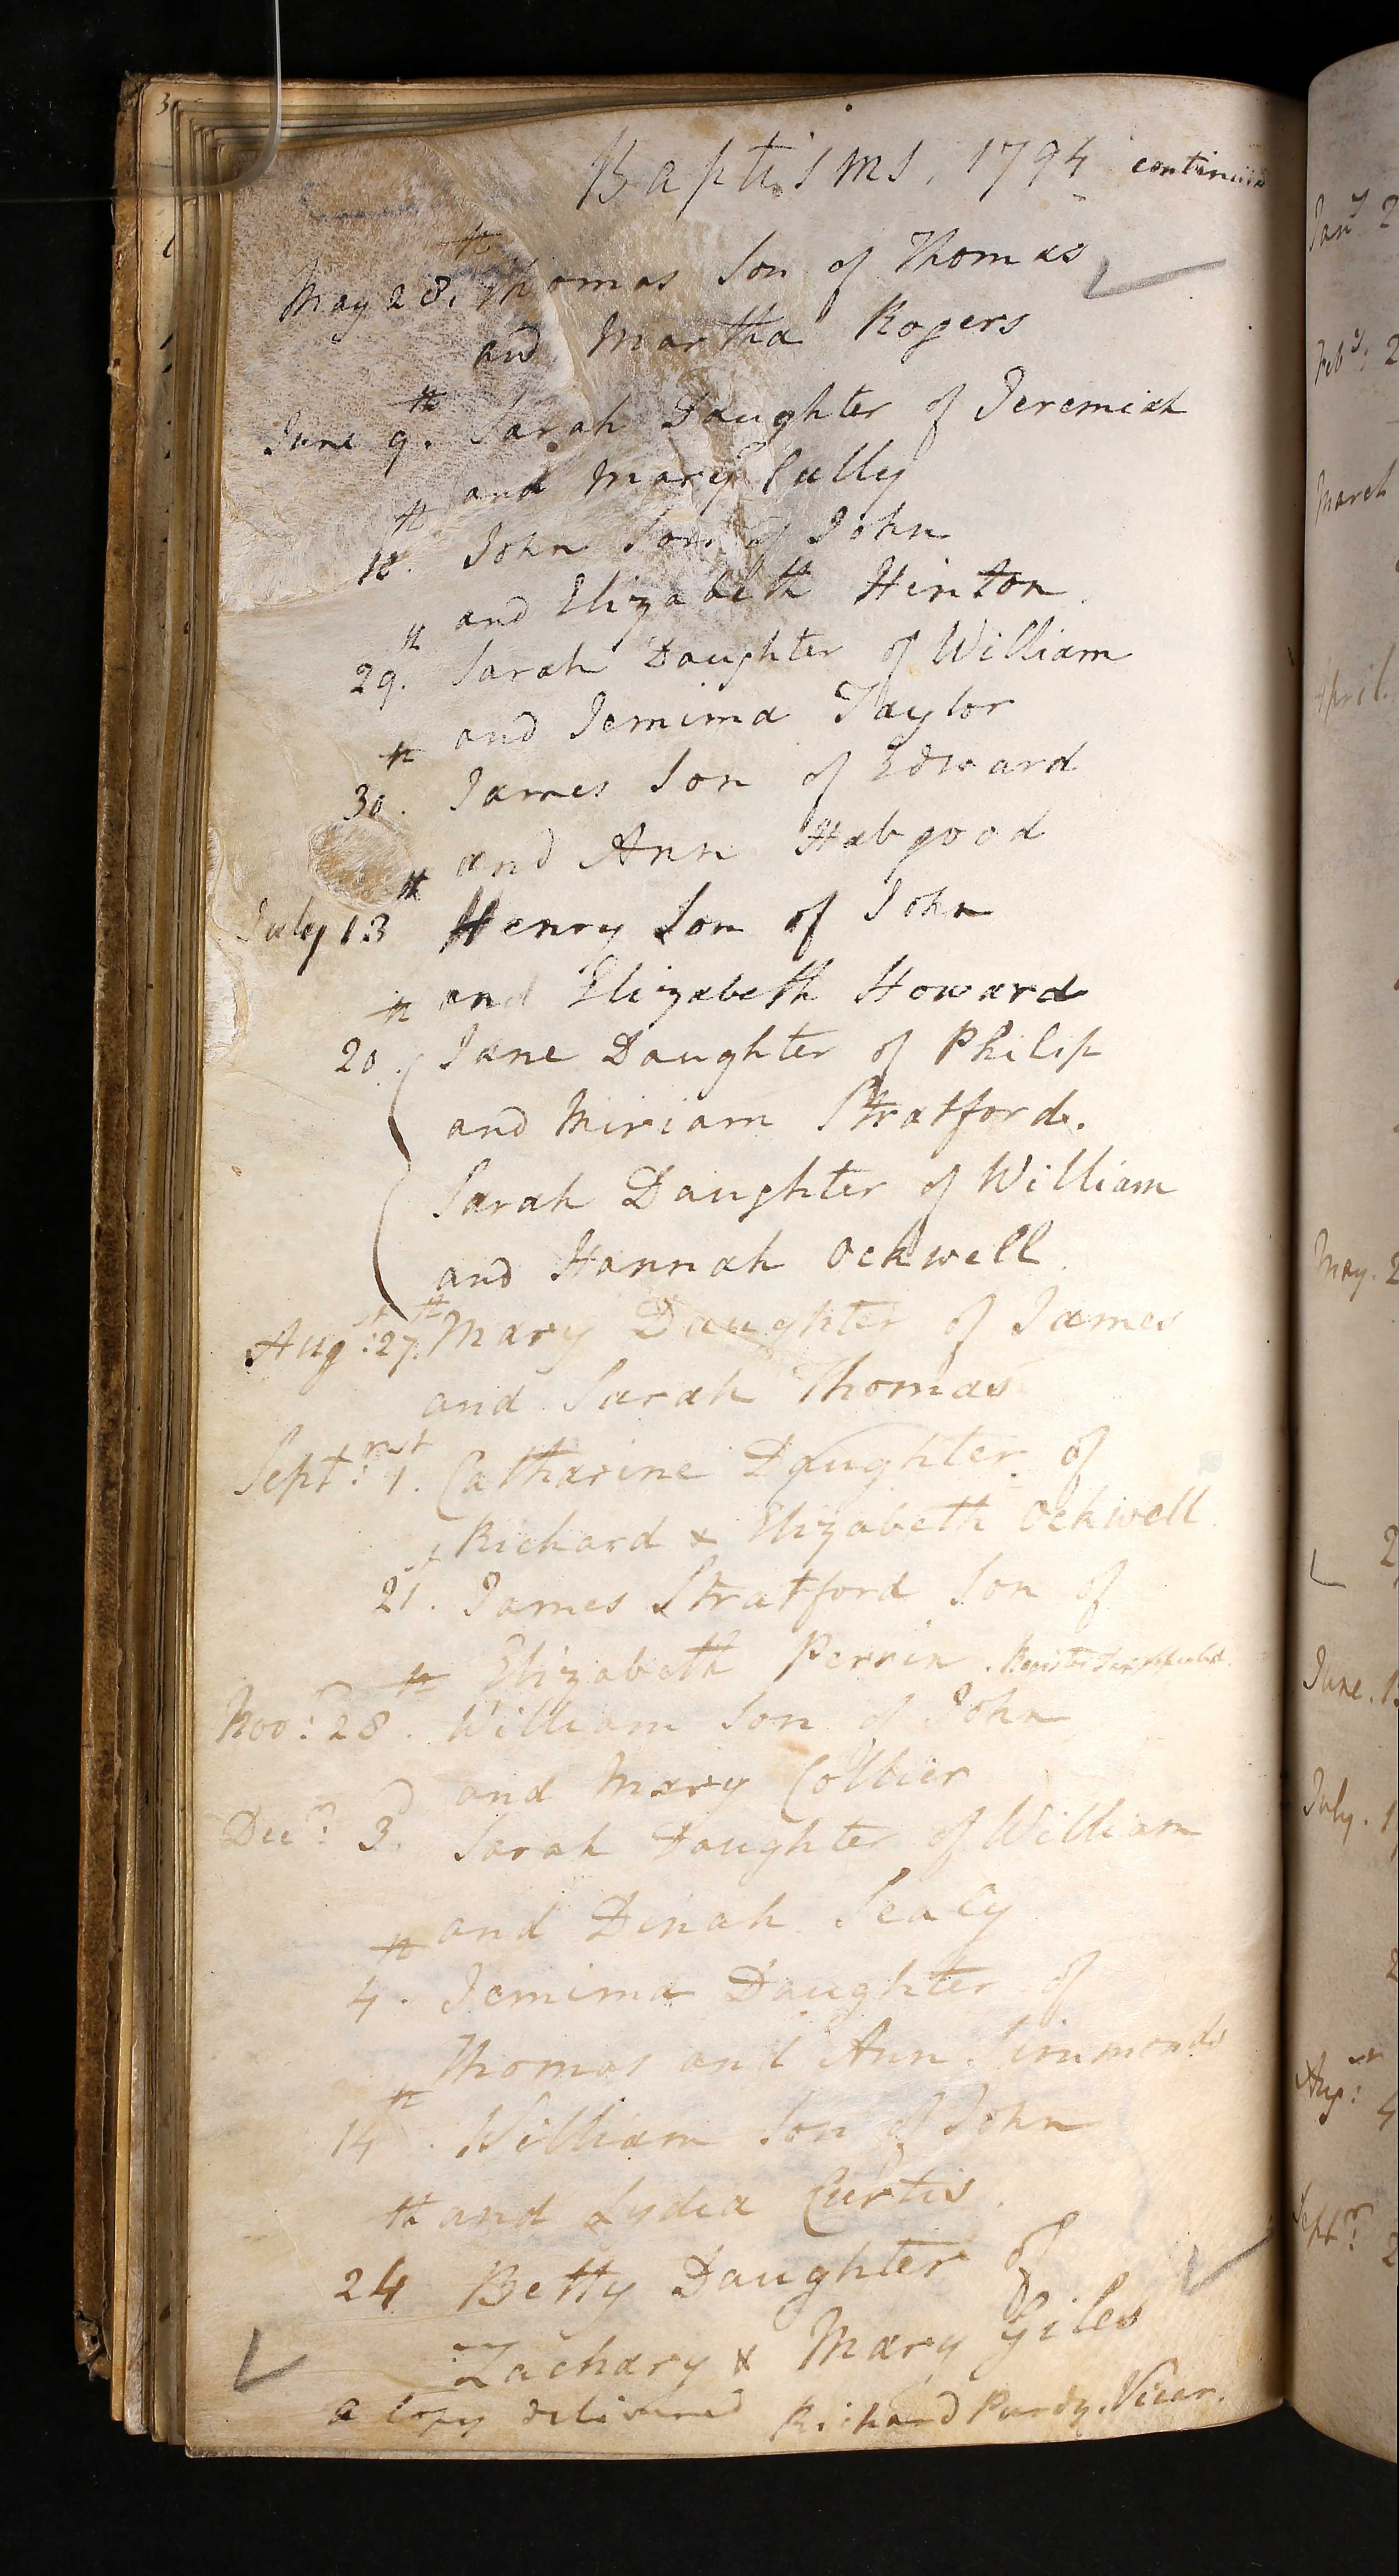 Baptisms, 1794 continued
May 28.th Thomas Son of Thomas
and Martha Rogers
June 9.th Sarah Daughter of Jeremiah
and Mary Cully
18.th John Son of John
and Elizabeth Hinton.
29.th Sarah Daughter of William
and Jemima Taylor
30.th James Son of Edward
and Ann Habgood
July 13th Henry Son of John
and Elizabeth Howard
20.th Jane Daughter of Philip
and Miriam Stratford.
Sarah Daughter of William
and Hannah Ockwell.
Augst: 27.th Mary Daughter of James
and Sarah Thomas
Septr: 1.st Catharine Daughter of
Richard & Elizabeth Ockwell
21.st James Stratford Son of
Elizabeth Perrin.
Novr: 28.th William Son of John
and Mary Collier
Decr: 3.d Sarah Daughter of William
and Dinah Sealy
4.th Jemima Daughter of
Thomas and Ann Simmonds
14th. William Son of John
and Lydia Curtis.
24th Betty Daughter of
Zachary & Mary Giles
a Copy delivered Richard Purdy. Vicar.
3
Jany 2
Feby: 2
March
April.
May. 2
2
June. 1
July. 1
2
Augst: 4
Septr: 2